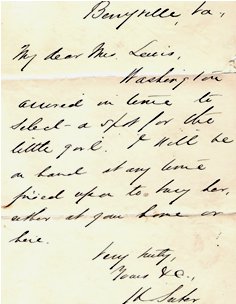 Berryville, Va.,
My dear Mr. Lewis,
Washington
arrived in time to
select a spot for the
little girl. I will be
on hand at any time
fixed upon to bury her,
either at your home or
here.
Very truly,
Yours &c.,